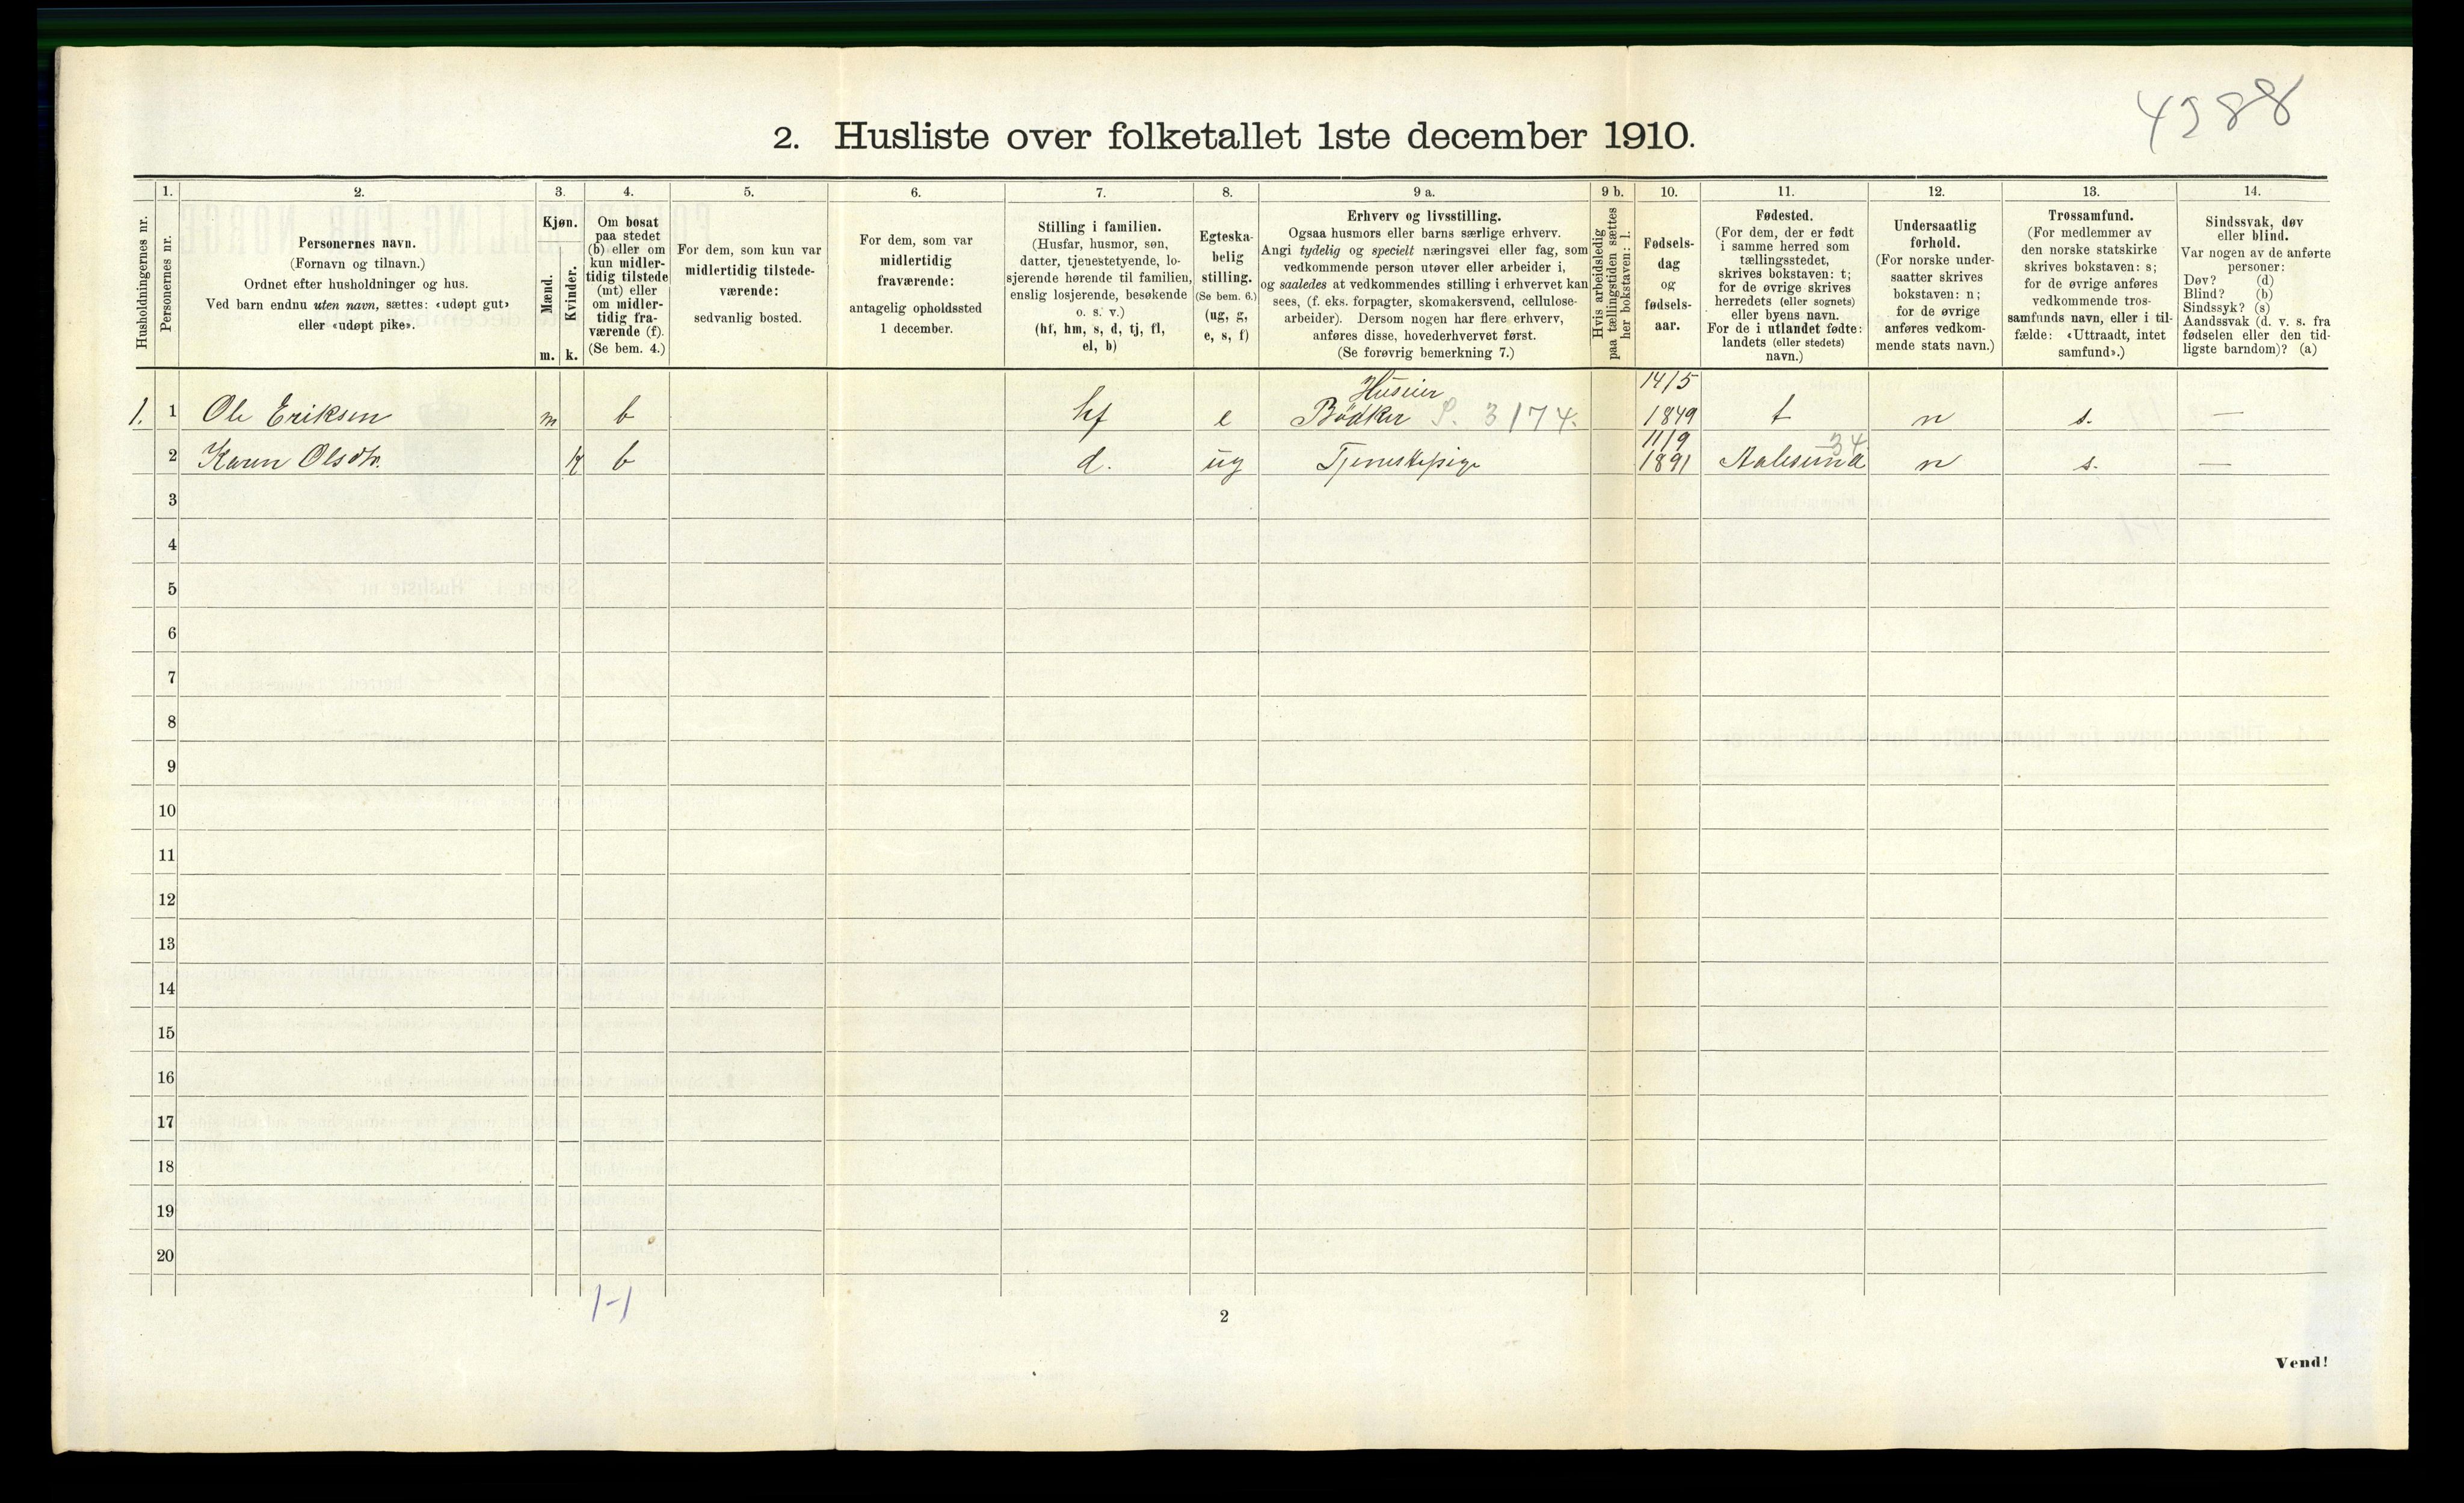 4988
2. Husliste over folketallet 1ste december 1910.
Husholdningernes nr.
1.
Personernes nr.
2.
Personernes navn.
(Fornavn og tilnavn.)
Ordnet efter husholdninger og hus.
Ved barn endnu uten navn, sættes: «udøpt gut»
eller «udøpt pike».
3.
Kjøn.
Mænd.
Kvinder.
m. k.
4.
Om bosat
paa stedet
(b) eller om
kun midler-
tidig tilstede
(mt) eller
om midler-
tidig fra-
værende (f).
(Se bem. 4.)
5.
For dem, som kun var
midlertidig tilstede-
værende:
sedvanlig bosted.
6.
For dem, som var
midlertidig
fraværende:
antagelig opholdssted
1 december.
7.
Stilling i familien.
(Husfar, husmor, søn,
datter, tjenestetyende, lo-
sjerende hørende til familien,
enslig losjerende, besøkende
o. s. v.)
(hf, hm, s, d, tj, fl,
el, b)
8.
Egteska-
belig
stilling.
(Se bem. 6.)
(ug, g,
e, s, f)
9 a.
Erhverv og livsstilling.
Ogsaa husmors eller barns særlige erhverv.
Angi tydelig og specielt næringsvei eller fag, som
vedkommende person utøver eller arbeider i,
og saaledes at vedkommendes stilling i erhvervet kan
sees, (f. eks. forpagter, skomakersvend, cellulose-
arbeider). Dersom nogen har flere erhverv,
anføres disse, hovederhvervet først.
(Se forøvrig bemerkning 7.)
9 b.
Hvis arbeidsledig
paa tællingstiden sættes
her bokstaven: l.
10.
Fødsels-
dag
og
fødsels-
aar.
11.
Fødested.
(For dem, der er født
i samme herred som
tællingsstedet,
skrives bokstaven: t;
for de øvrige skrives
herredets (eller sognets)
eller byens navn.
For de i utlandet fødte:
landets (eller stedets)
navn.)
12.
Undersaatlig
forhold.
(For norske under-
saatter skrives
bokstaven: n;
for de øvrige
anføres vedkom-
mende stats navn.)
13.
Trossamfund.
(For medlemmer av
den norske statskirke
skrives bokstaven: s;
for de øvrige anføres
vedkommende tros-
samfunds navn, eller i til-
fælde: «Uttraadt, intet
samfund».)
14.
Sindssvak, døv
eller blind.
Var nogen av de anførte
personer:
Døv? (d)
Blind? (b)
Sindssyk? (s)
Aandssvak (d. v. s. fra
fødselen eller den tid-
ligste barndom)? (a)
Huseier 14/5
1. 1 Ole Eriksen m b hf e Bödker S. 3174. 1849 t n s. —
11/9 34
2 Karen Olsdtr. k b d. ug Tjenestepige 1891 Aalesund n s. —
3
4
5
6
7
8
9
10
11
12
13
14
15
16
17
18
19
20
1-1
2
Vend!